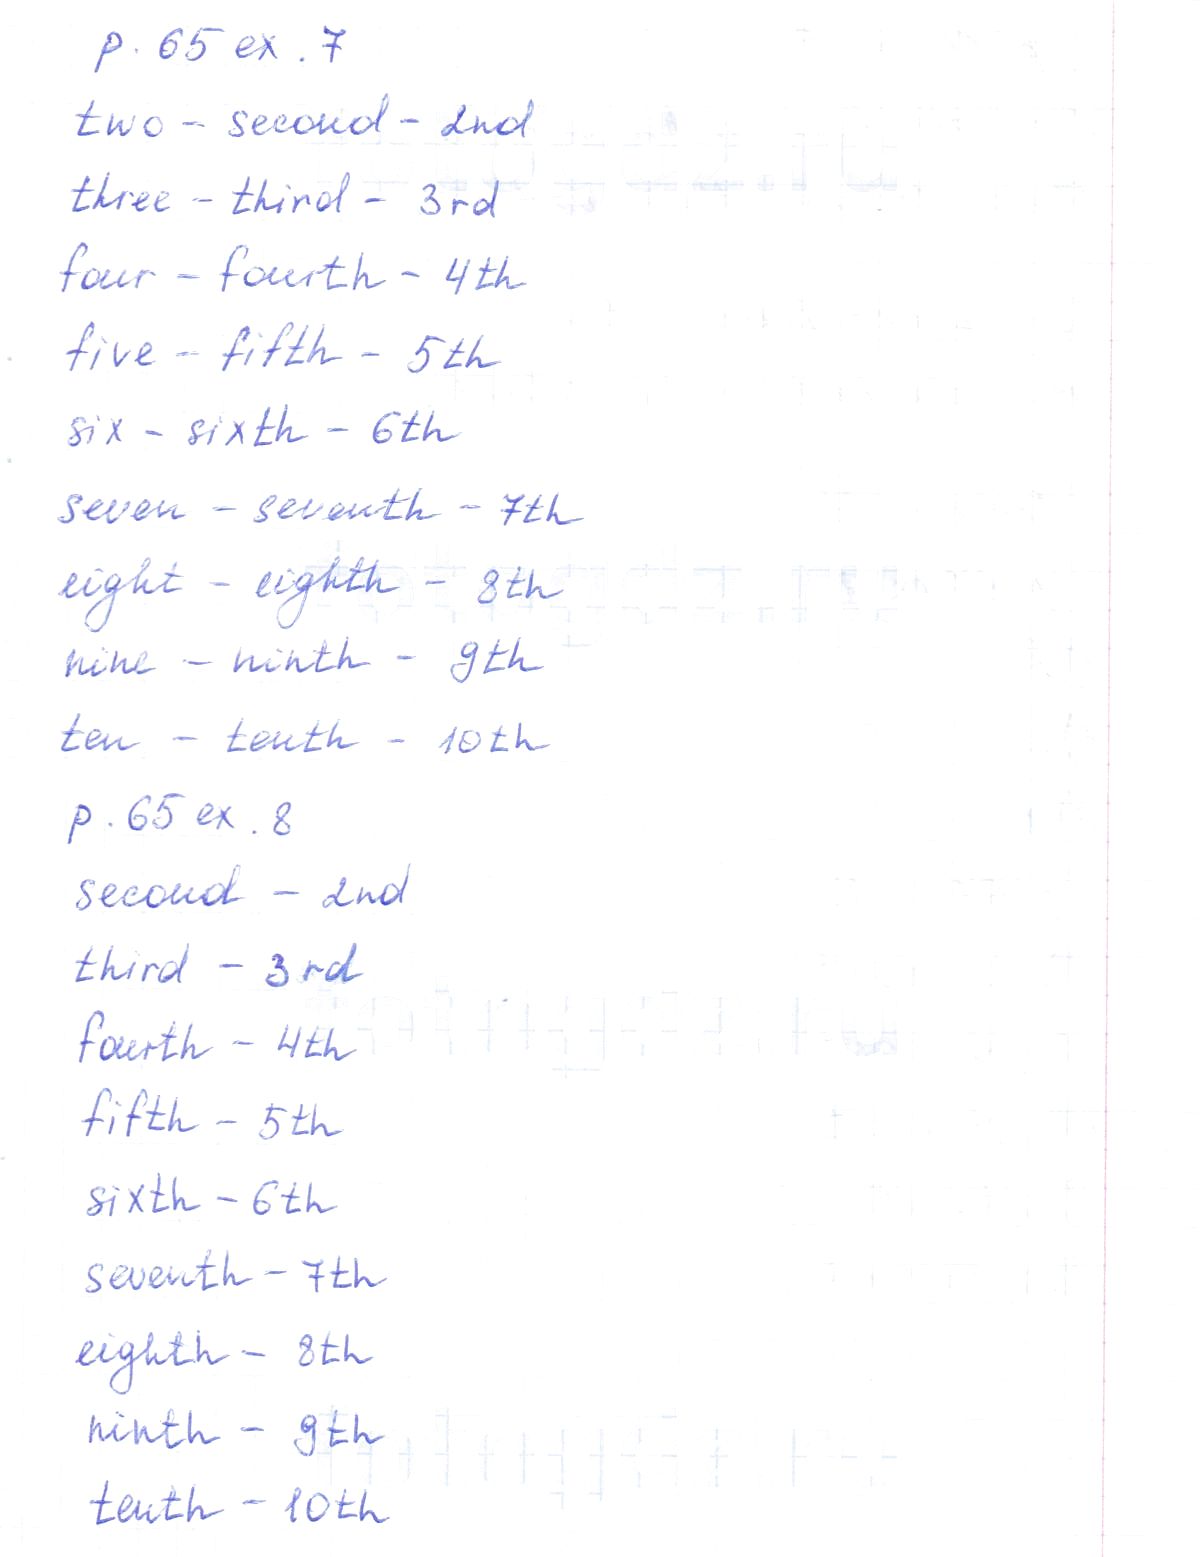 p. 65 ex. 7
two - second - 2nd
three - third - 3rd
four - fourth - 4th
five - fifth - 5th
six - sixth - 6th
seven - seventh - 7th
eight - eighth - 8th
nine - ninth - 9th
ten - tenth - 10th
p. 65 ex. 8
second - 2nd
third - 3rd
fourth - 4th
fifth - 5th
sixth - 6th
seventh - 7th
eighth - 8th
ninth - 9th
tenth - 10th